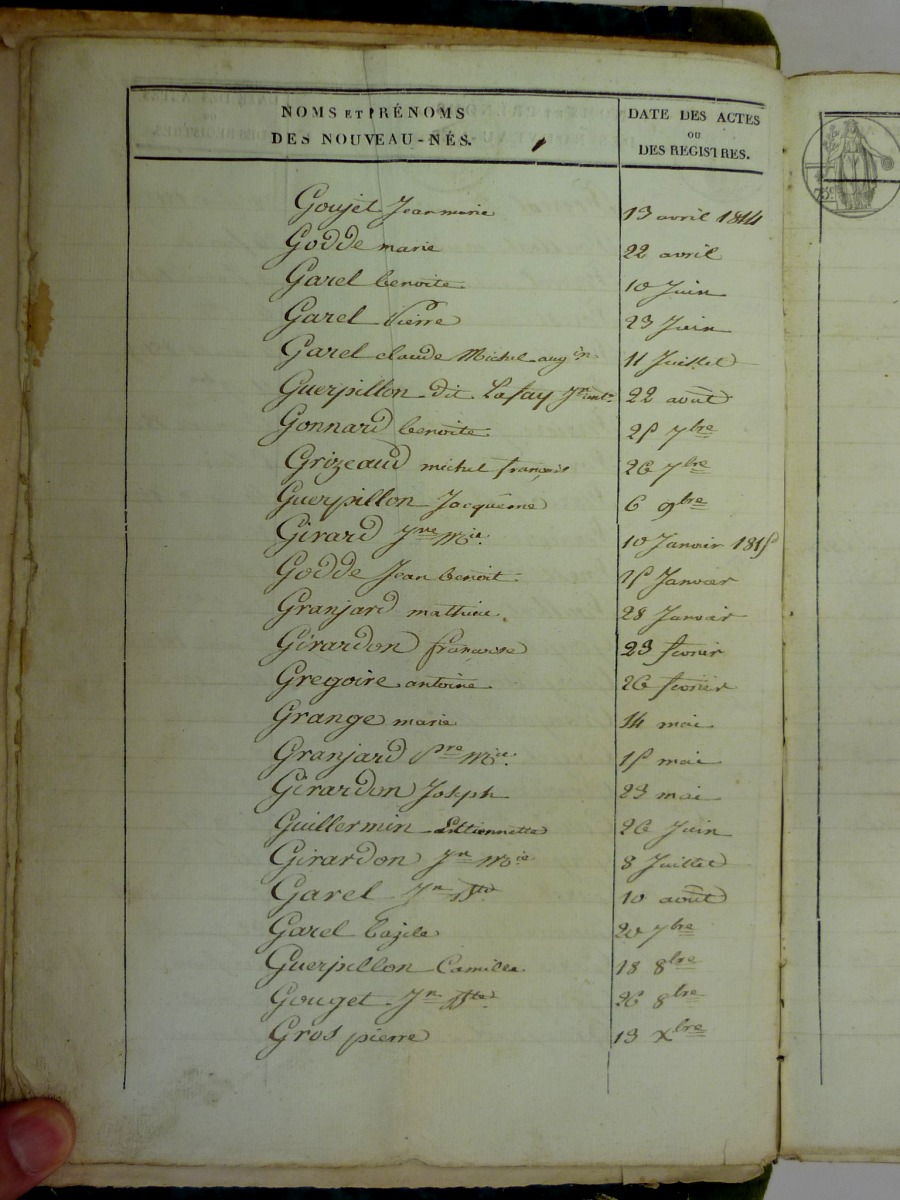 NOMS ET PRÉNOMS
DES NOUVEAU-NÉS.
DATE DES ACTES
OU
DES REGISTRES.
Goujet Jeanmarie 13 avril 1814
Godde marie 22 avril
Garel benoite 10 Juin
Garel Pierre 23 Juin
Garel claude Michel augin 11 Juillet
Guerpillon dit Lafay Jn antne 22 août
Gonnard benoite 25 7bre
Grizeaud michel françois 26 7bre
Guerpillon Jacqueme 6 9bre
Girard Jne Mie 10 Janvier 1815
Godde Jean benoit 15 Janvier
Granjard mathieu 28 Janvier
Girardon françoise 23 fevrier
Gregoire antoine 26 fevrier
Grange marie 14 mai
Granjard Pre Mie 15 mai
Girardon Joseph 23 mai
Guillermin Ettiennette 26 Juin
Girardon Jn Mie 8 Juillet
Garel Jn Bte 10 août
Garel bazile 20 7bre
Guerpillon Camille 18 8bre
Gouget Jn Bte 26 8bre
Gros pierre 13 Xbre
75c.